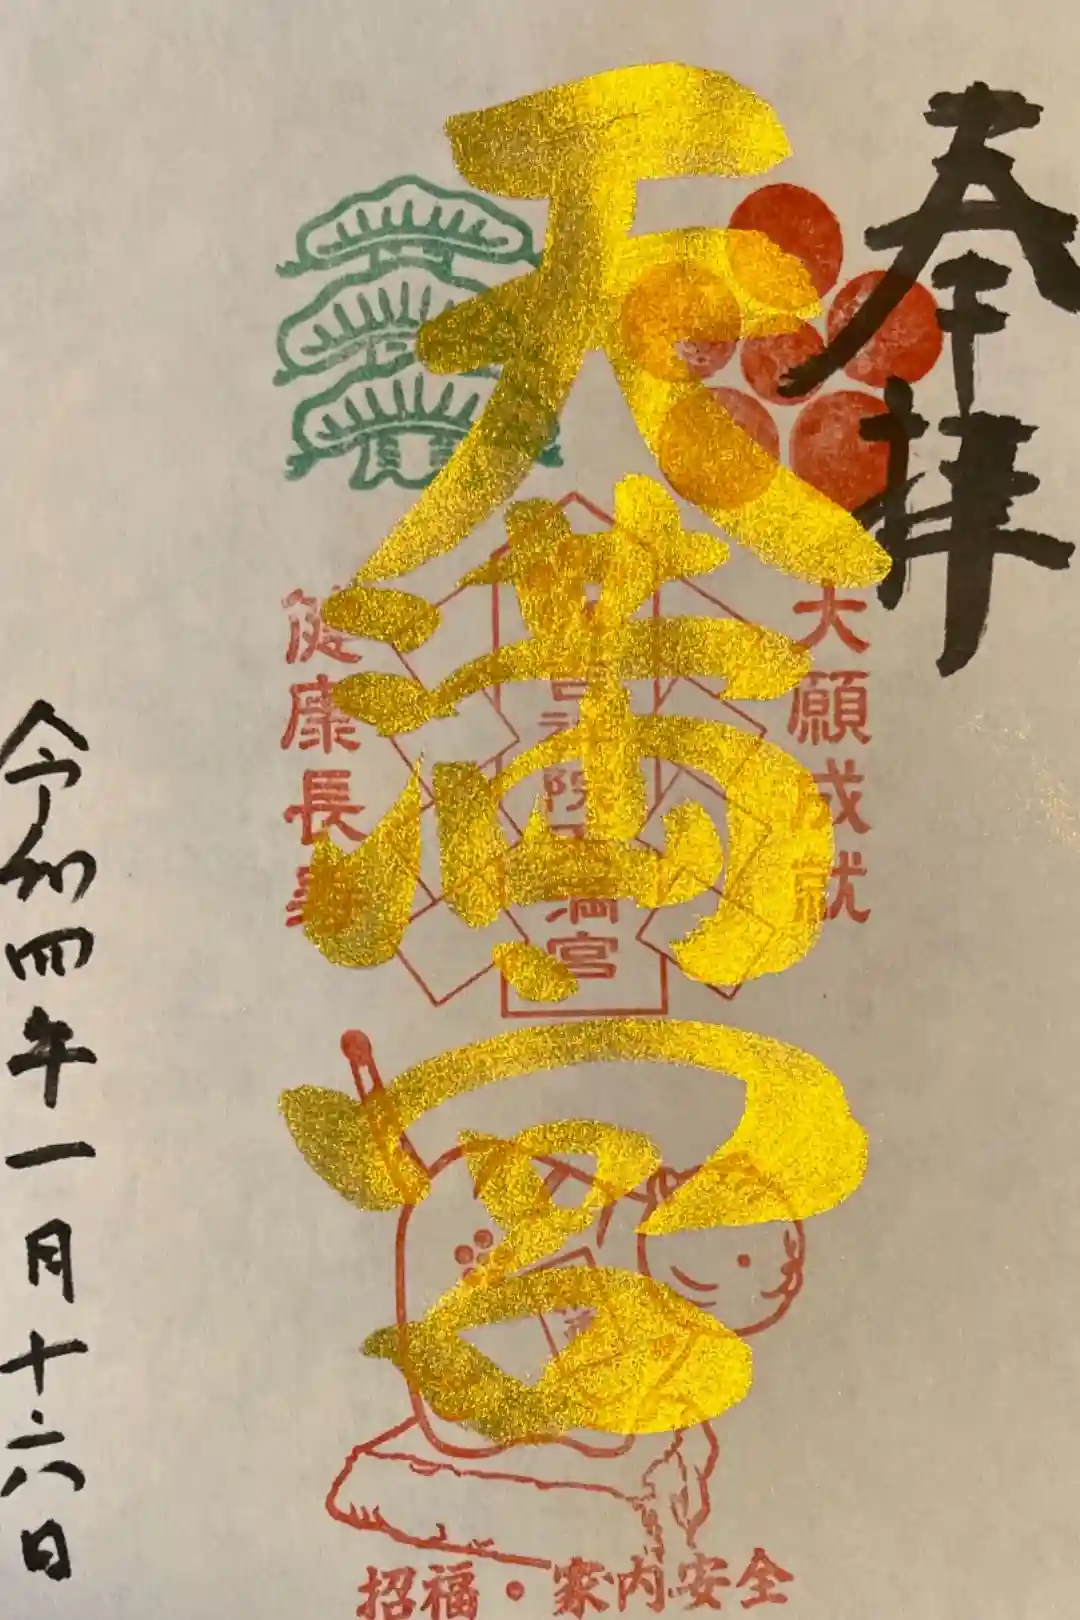 奉拝
大願成就
天満宮
健康長寿
令和四年一月十六日
招福・家内安全